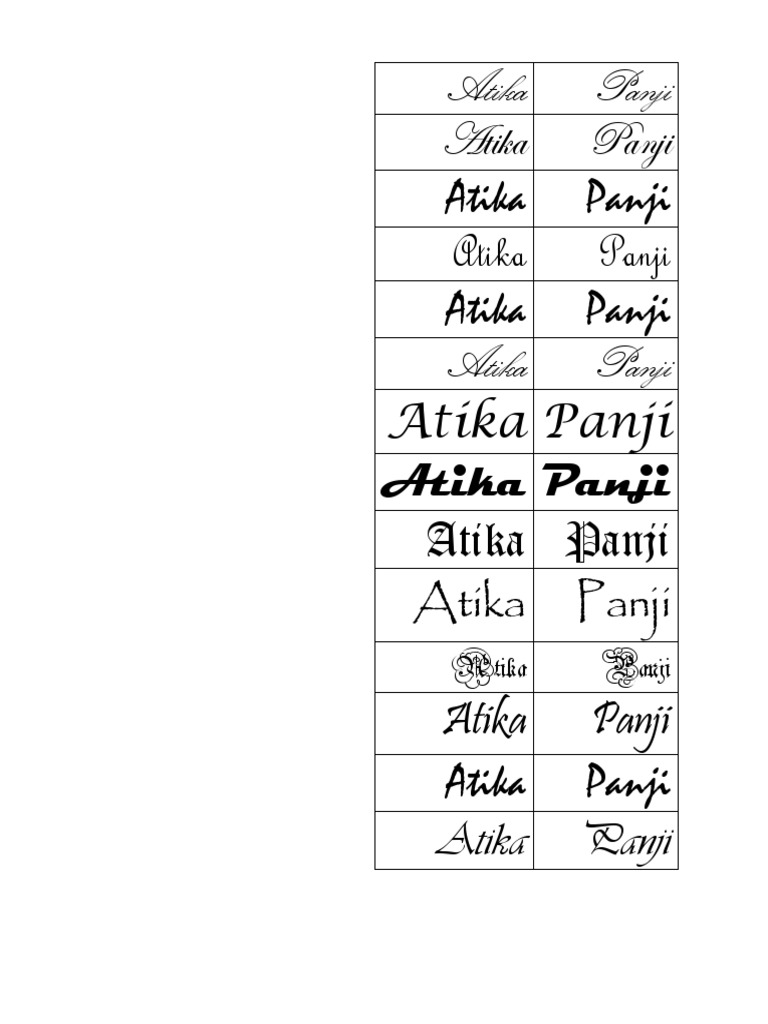 Atika Panji
Atika Panji
Atika Panji
Atika Panji
Atika Panji
Atika Panji
Atika Panji
Atika Panji
Atika Panji
Atika Panji
Atika Panji
Atika Panji
Atika Panji
Atika Panji